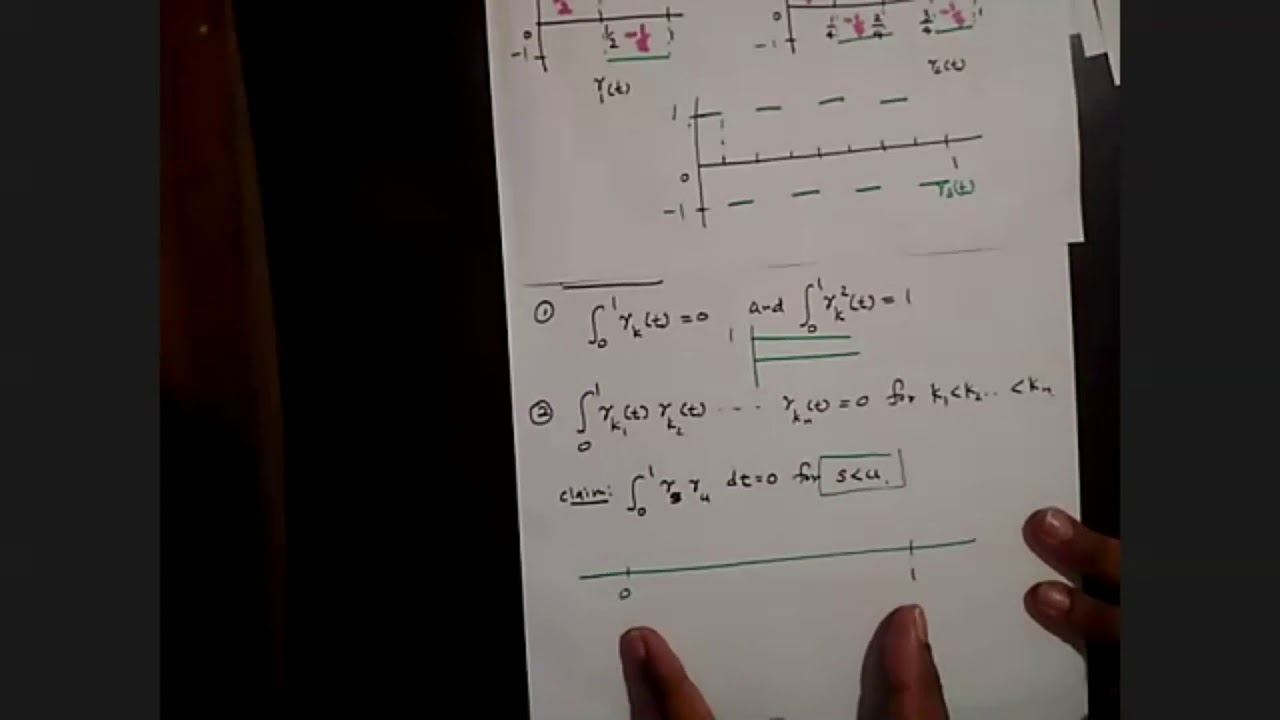 0 1/2
-1/2
-1 1/2 1
r₁(t)
0 1/4 2/4 3/4 1
-1
r₂(t)
1
0 1
-1 r₃(t)
① ∫₀¹ r_k(t) = 0 and ∫₀¹ r_k²(t) = 1
1
② ∫₀¹ r_{k₁}(t) r_{k₂}(t) ... r_{kₙ}(t) = 0 for k₁<k₂.. <kₙ
claim: ∫₀¹ r_s r_u dt=0 for s<u.
0 1